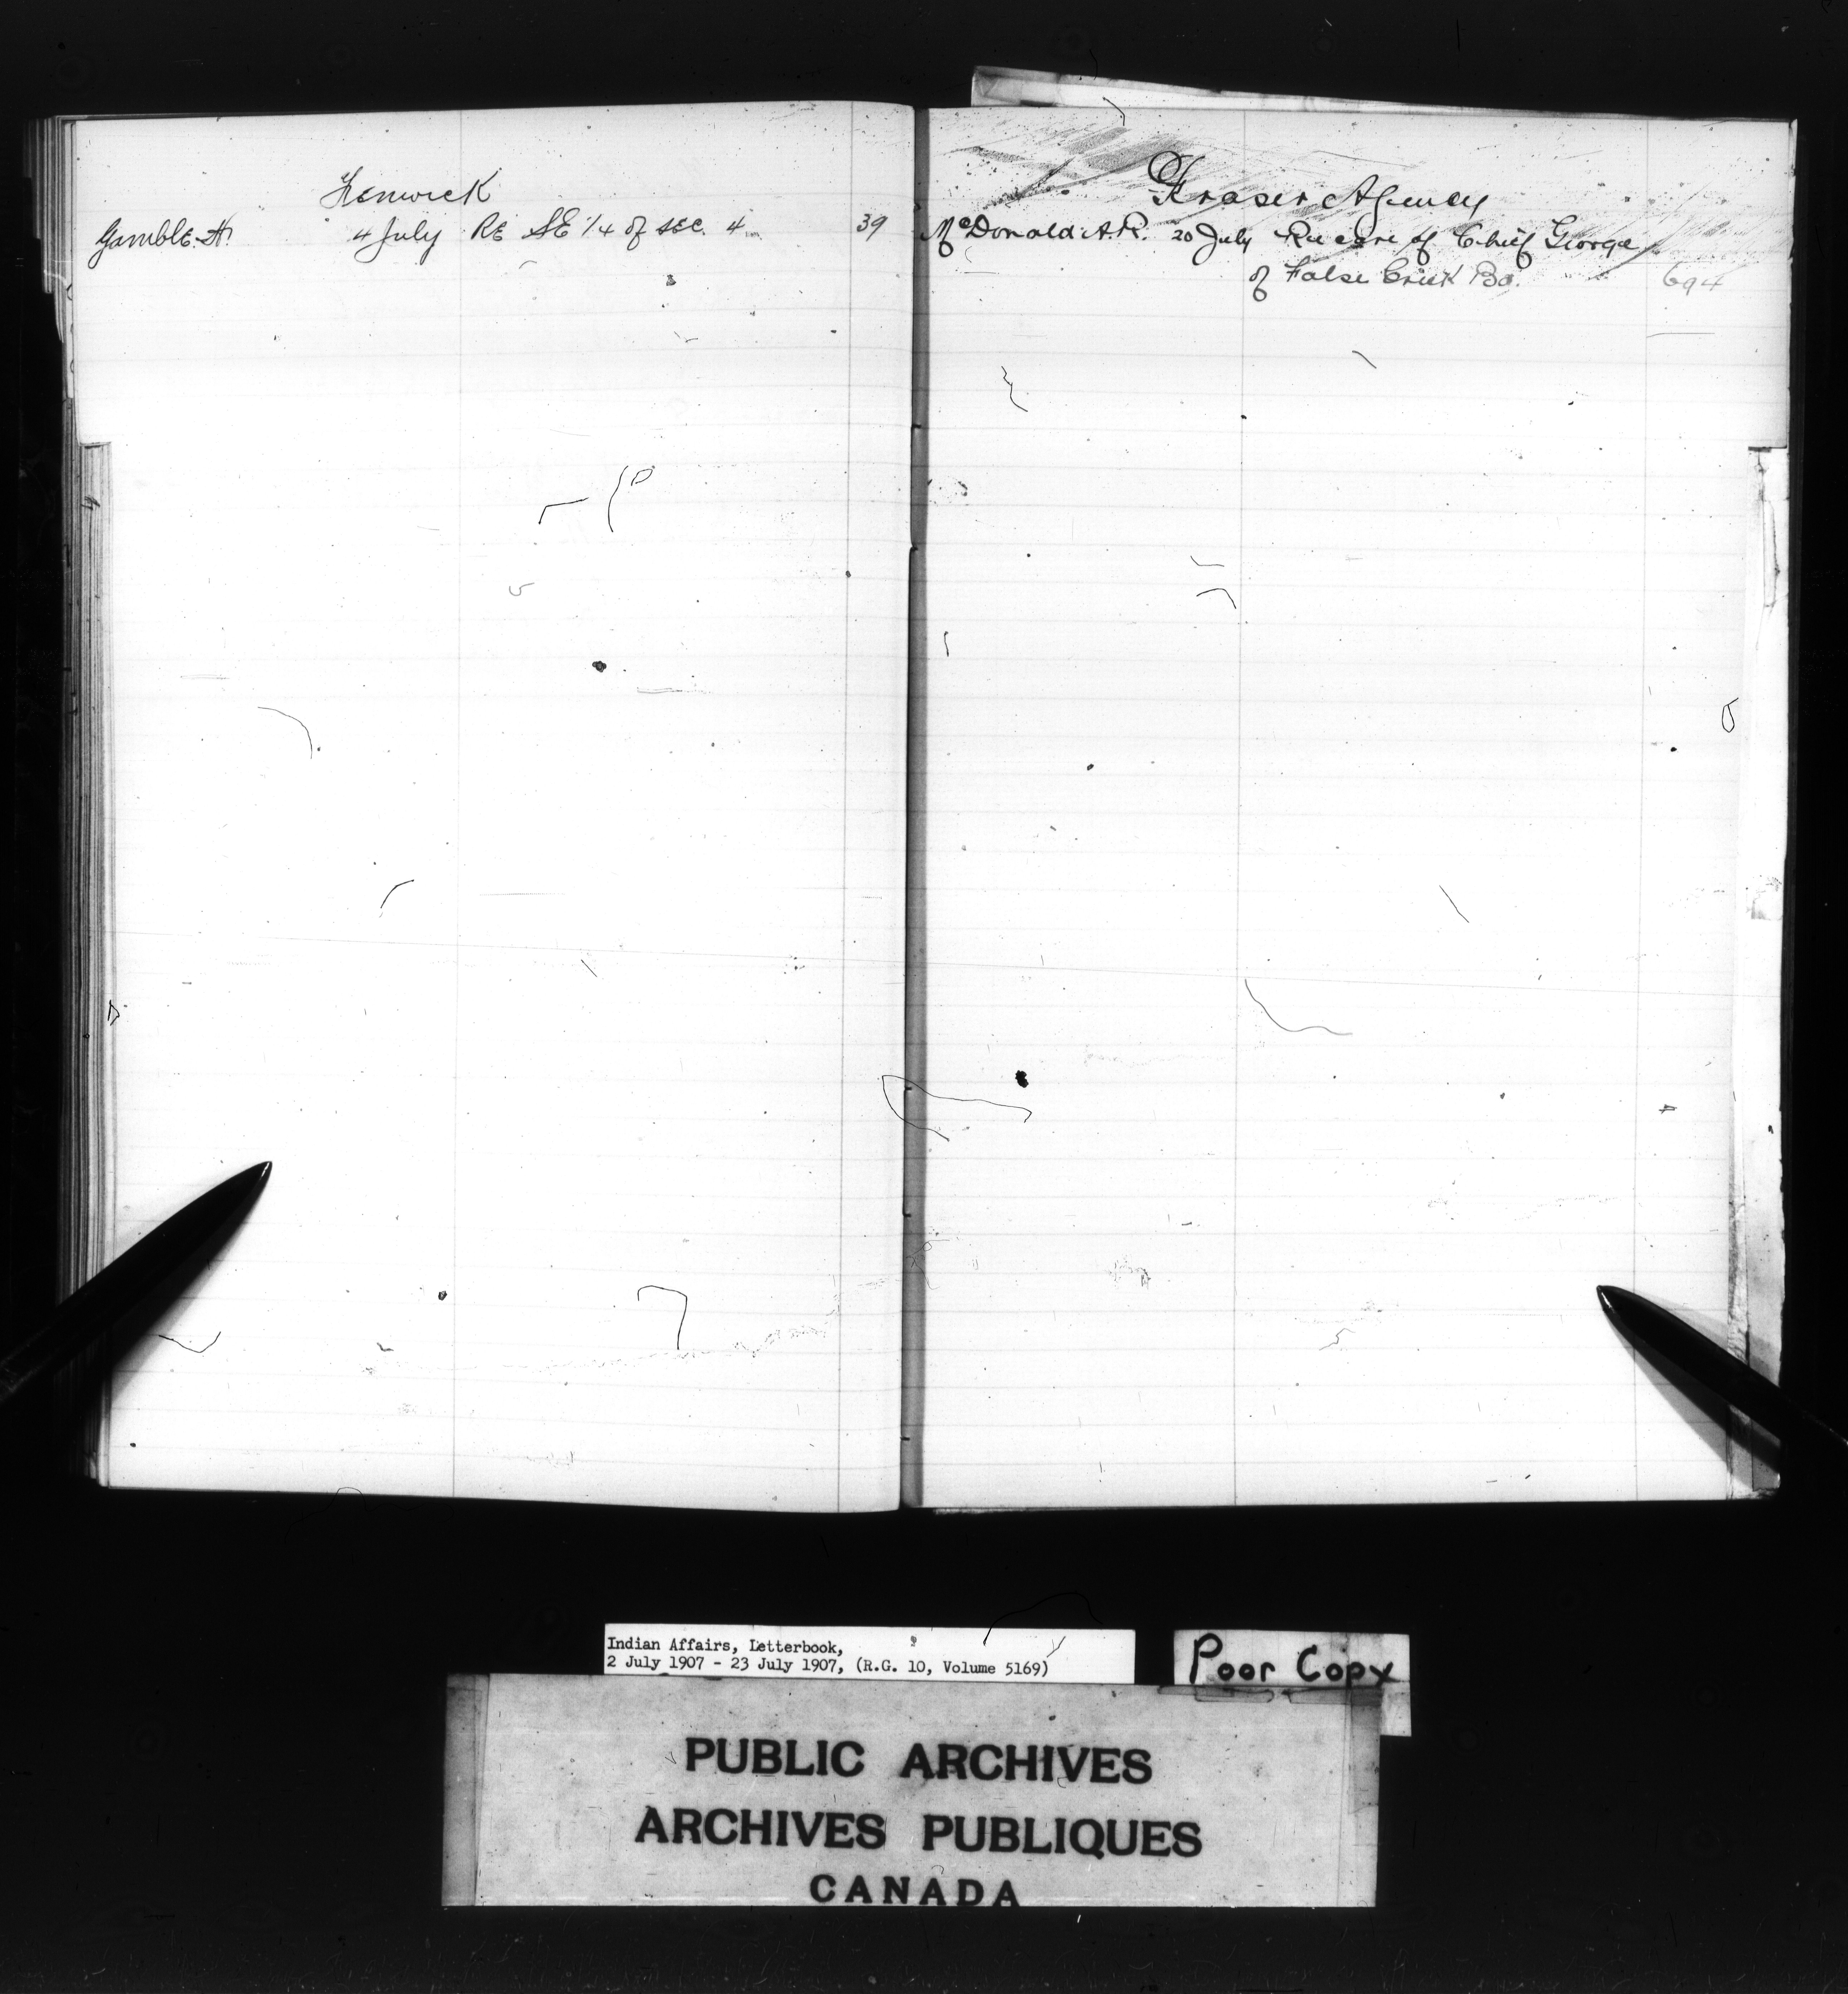 Fenwick
Gamble. A. 4 July RE SE 1/4 of sec. 4 39
Fraser Agency
McDonald. A. R. 20 July Re care of Chief George
of False Creek Bd. 694
Indian Affairs, Letterbook,
2 July 1907 - 23 July 1907, (R.G. 10, Volume 5169)
Poor Copy
PUBLIC ARCHIVES
ARCHIVES PUBLIQUES
CANADA